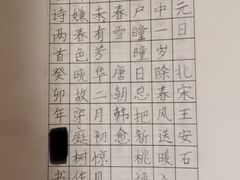 元日 北宋王安石
中一岁除春风送暖入
户曈曈日总把新桃
春雪 唐朝韩愈
未有芳华二月初惊见
嫌春色晚故穿庭树作
诗两首癸卯年 书